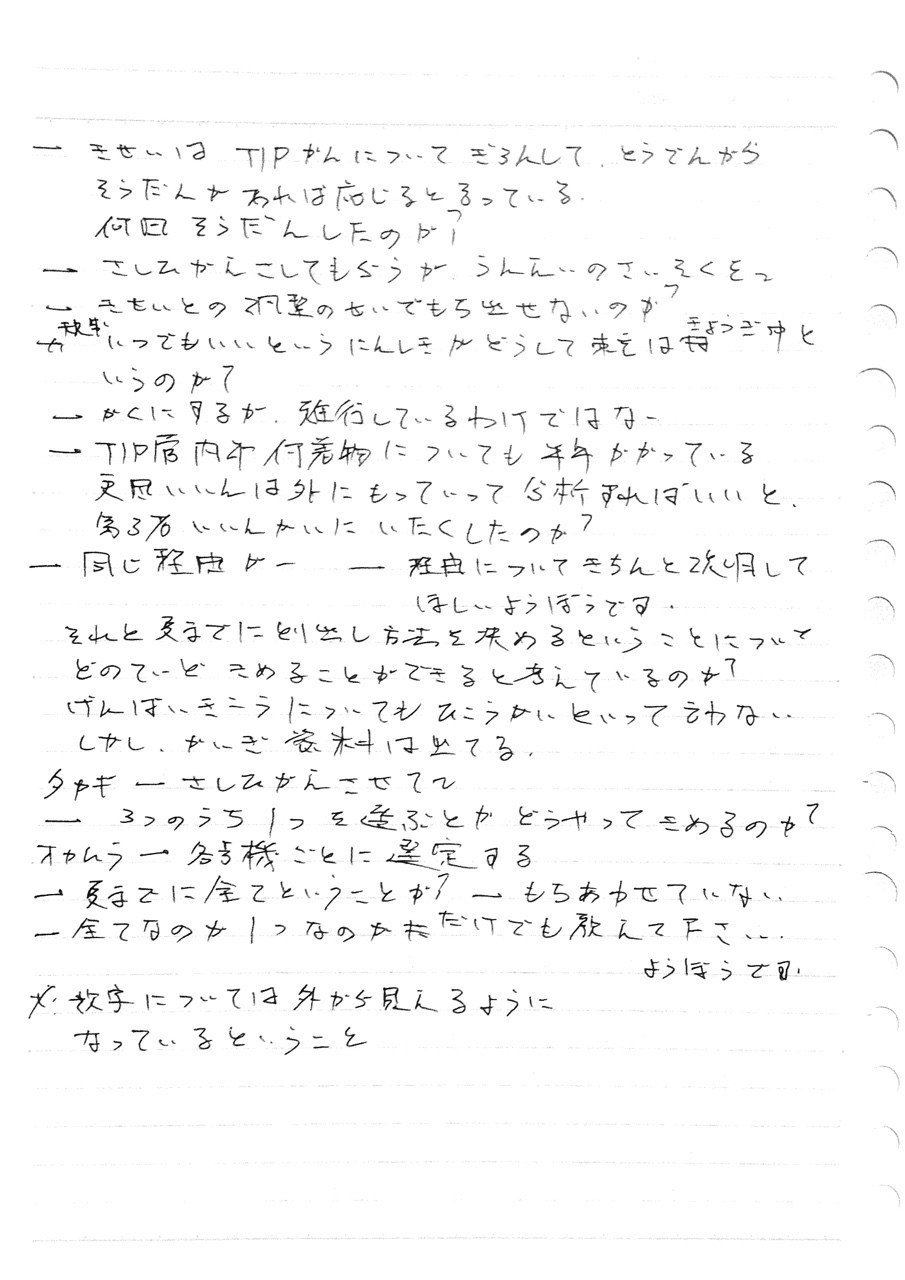 ー きせいは TIPがんについて ぎろんして、とうでんから
そうだんが あれば応じると言っている.
何回 そうだんしたのか?
ー さしひかえさしてもらうが うんえいのさいそくをっ
ー きせいとの 調整のせいでもち出せないのか?
いつでもいいという にんしきが どうして 東電は きょうぎ中と
いうのか?
ー かくにするが、進行しているわけではなー
ー TIP管内や 付着物についても 半年 かかっている
更田いいんは外に もっていって 分析すればいいと、
第3者 いいんかいに いたくしたのか?
ー 同じ理由がー ー 理由について きちんと説明して
ほしいようぼうです.
それと 夏までに とり出し方法を決めるということについて
どのていど きめることができると考えているのか?
げんばいきこうについても ひこうかいといって 言わない
しかし、かいぎ資料は出てる.
タカギ ー さしひかえさせてて
ー 3つのうち 1つを選ぶとか どうやって きめるのか?
オカムラ ー 各号機ごとに 選定する
ー 夏までに全てということか? ー もちあわせていない
ー 全てなのか 1つなのかだけでも教えて下さい.
ようぼうです.
※. 数字については 外から見えるように
なっているということ